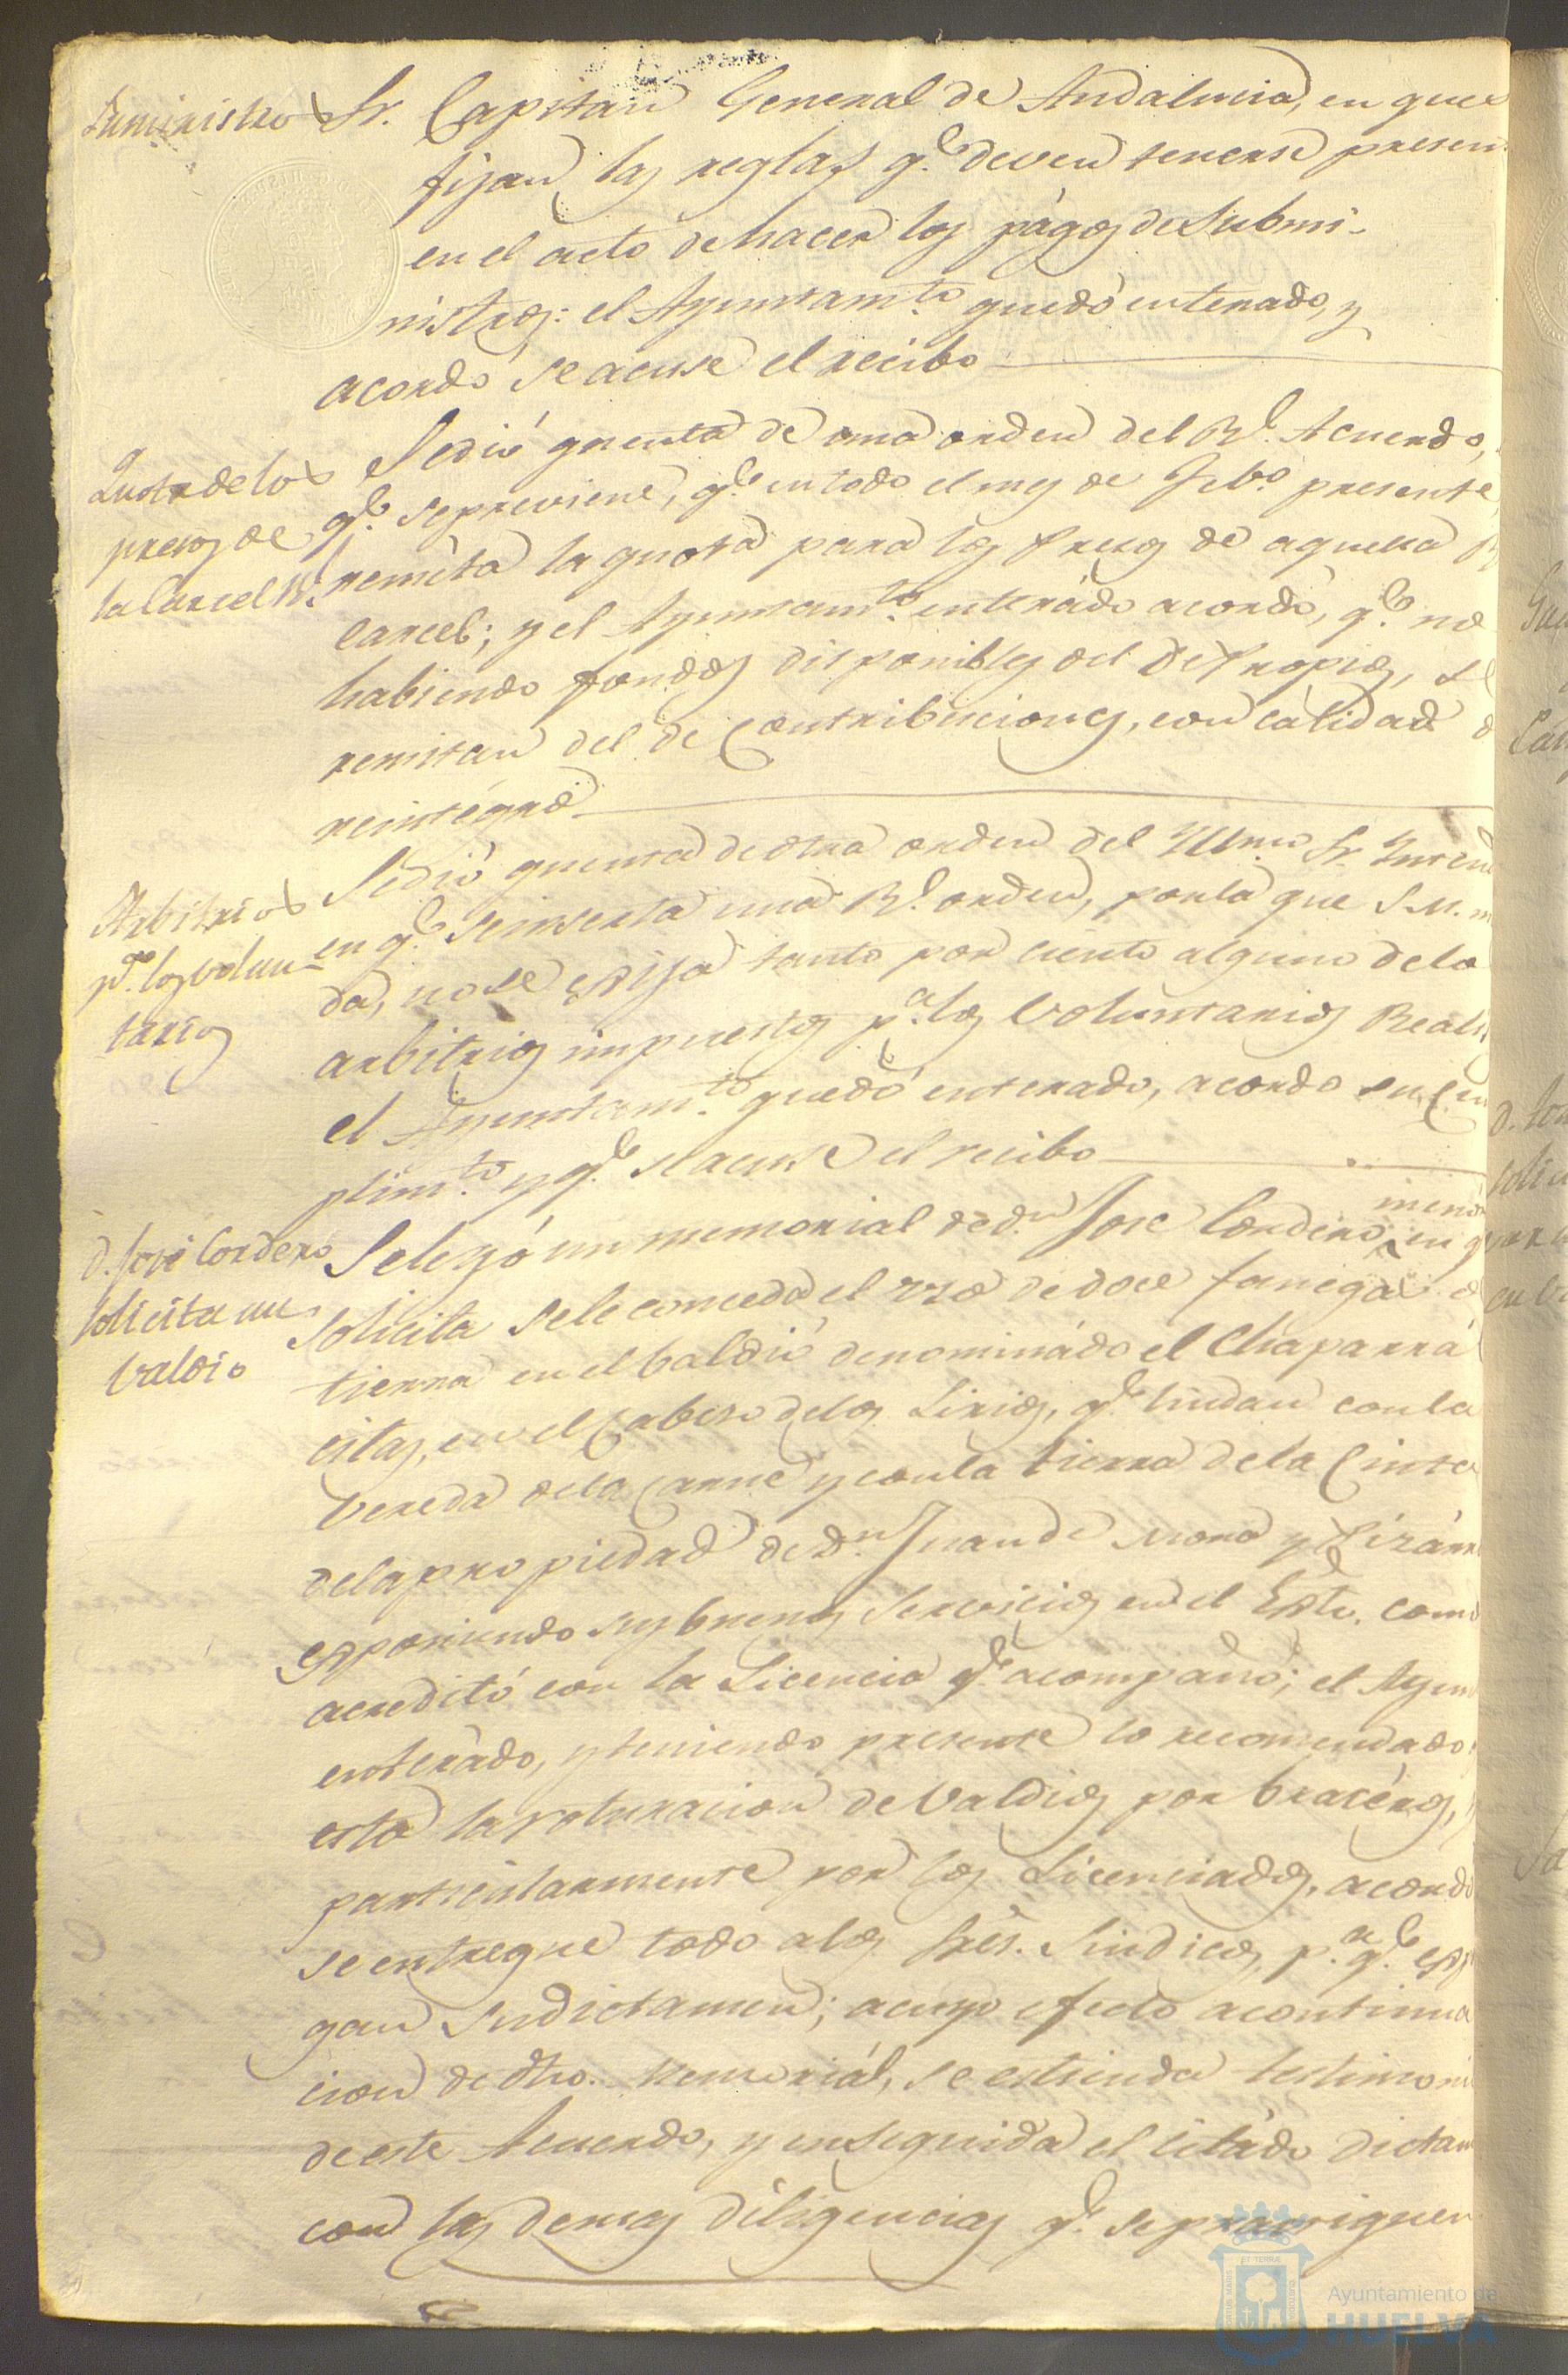 Suministro
Sr. Capitan General de Andalucia, en que
fijan las reglas q.e deven tenerse presen
en el acto de hacer los págos de Submi-
nistros: el Ayuntam.to quedó enterado, y
acordó se acuse el recibo
Quota de los
presos de
la Carcel R.l
Se dió quenta de una orden del R.l Acuerdo,
q.e se previene, q.e en todo el mes de Feb.o presente,
remita la quota para los presos de aquella R
Carcel; y el Ayuntam.to enterádo acordó, q.e no
habiendo fondos disponibles del de Propios, se
remitan del de Contribuciones, con cálidad d
reintégro
Arbitrios
p.a los volun-
tarios
Se dió quenta de otra orden del Yllmo Sr. Inten
en q.e se inserta una R.l orden, por la que S.M. m
da, no se exija tanto por ciento alguno de lo
arbitrios impuestos p.a los Voluntarios Reali
el Ayuntam.to quedó enterado, acordó su Cum
plim.to y q.e se acuse el recibo
D. José Cordero
solicita un
valdio
Se leyó un memorial de d.n José Cordero menór en q
solicita se le conceda el uso de doce fanegas d
tierra en el baldio denominádo el Chaparrá
citas, en el Cabeso de los Lirios, q.e lindan con la
Vereda de la Carne y con la tierra de la Cinta
de la propiedad de D.n Juan de Mora y Pizárr
esponiendo sus buenos Servicios en el Exto. como
acreditó con la Licencia q.e acompañó; el Ayun
enterádo, y teniendo presente lo recomendado
está la roturacion de Valdios por bracéros, y
particularmente por los Licenciados, acordó
se entregue todo a los Sres. Sindicos, p.a q.e espo
gan su dictamen; a cuyo efecto a continua
cion de dho. Memoriál, se estienda testimoni
de este Acuerdo, y en seguida el citádo dictam
con las demas diligencias q.e se practiquen
Ayuntamiento de
HUELVA